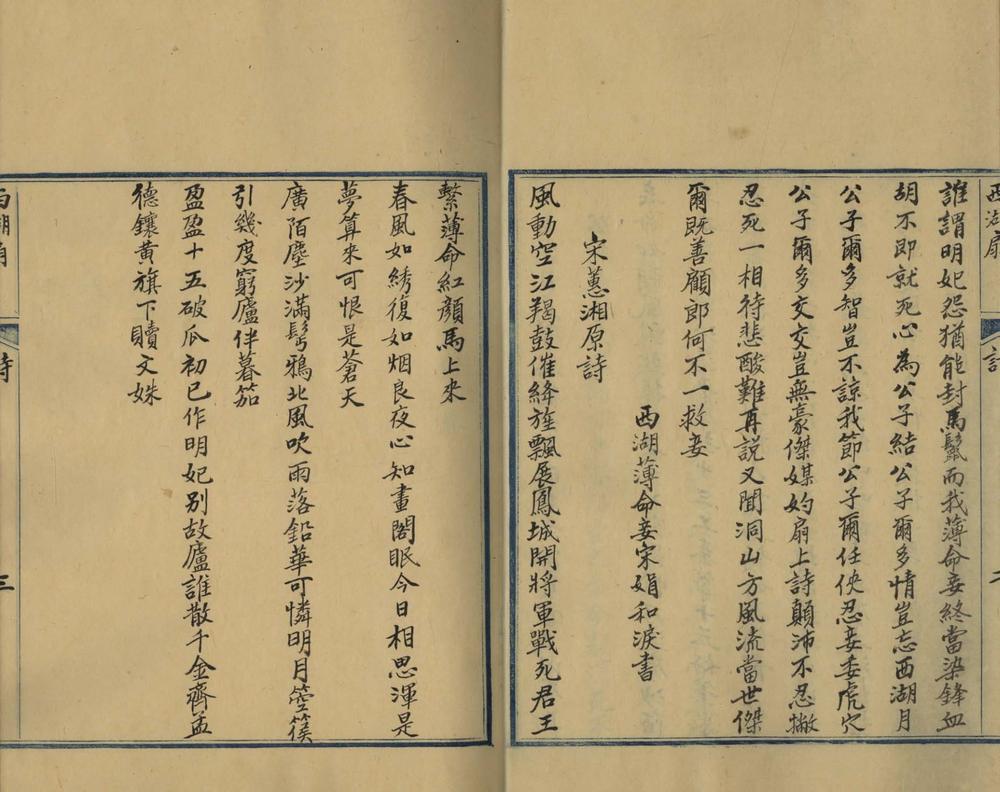 西湖扇
誰謂明妃怨猶能封馬鬣而我薄命妾終當染鋒血
胡不即就死心為公子結公子爾多情豈忘西湖月
公子爾多智豈不諒我節公子爾任俠忍妾委虎穴
公子爾多交交豈無豪傑媒妁扇上詩顛沛不忍撇
忍死一相待悲酸難再說又聞洞山方風流當世傑
爾既善顧郎何不一救妾
西湖薄命妾宋娟和淚書
宋蕙湘原詩
風動空江羯鼓催絳旌飄展鳳城開將軍戰死君王
繫薄命紅顏馬上來
春風如綉復如烟良夜心知畫閣眠今日相思渾是
夢算來可恨是蒼天
廣陌塵沙滿髩鴉北風吹雨落鉛華可憐明月箜篌
引幾度窮廬伴暮笳
盈盈十五破瓜初已作明妃別故廬誰散千金齊孟
德鑲黃旗下贖文姝
詩
三